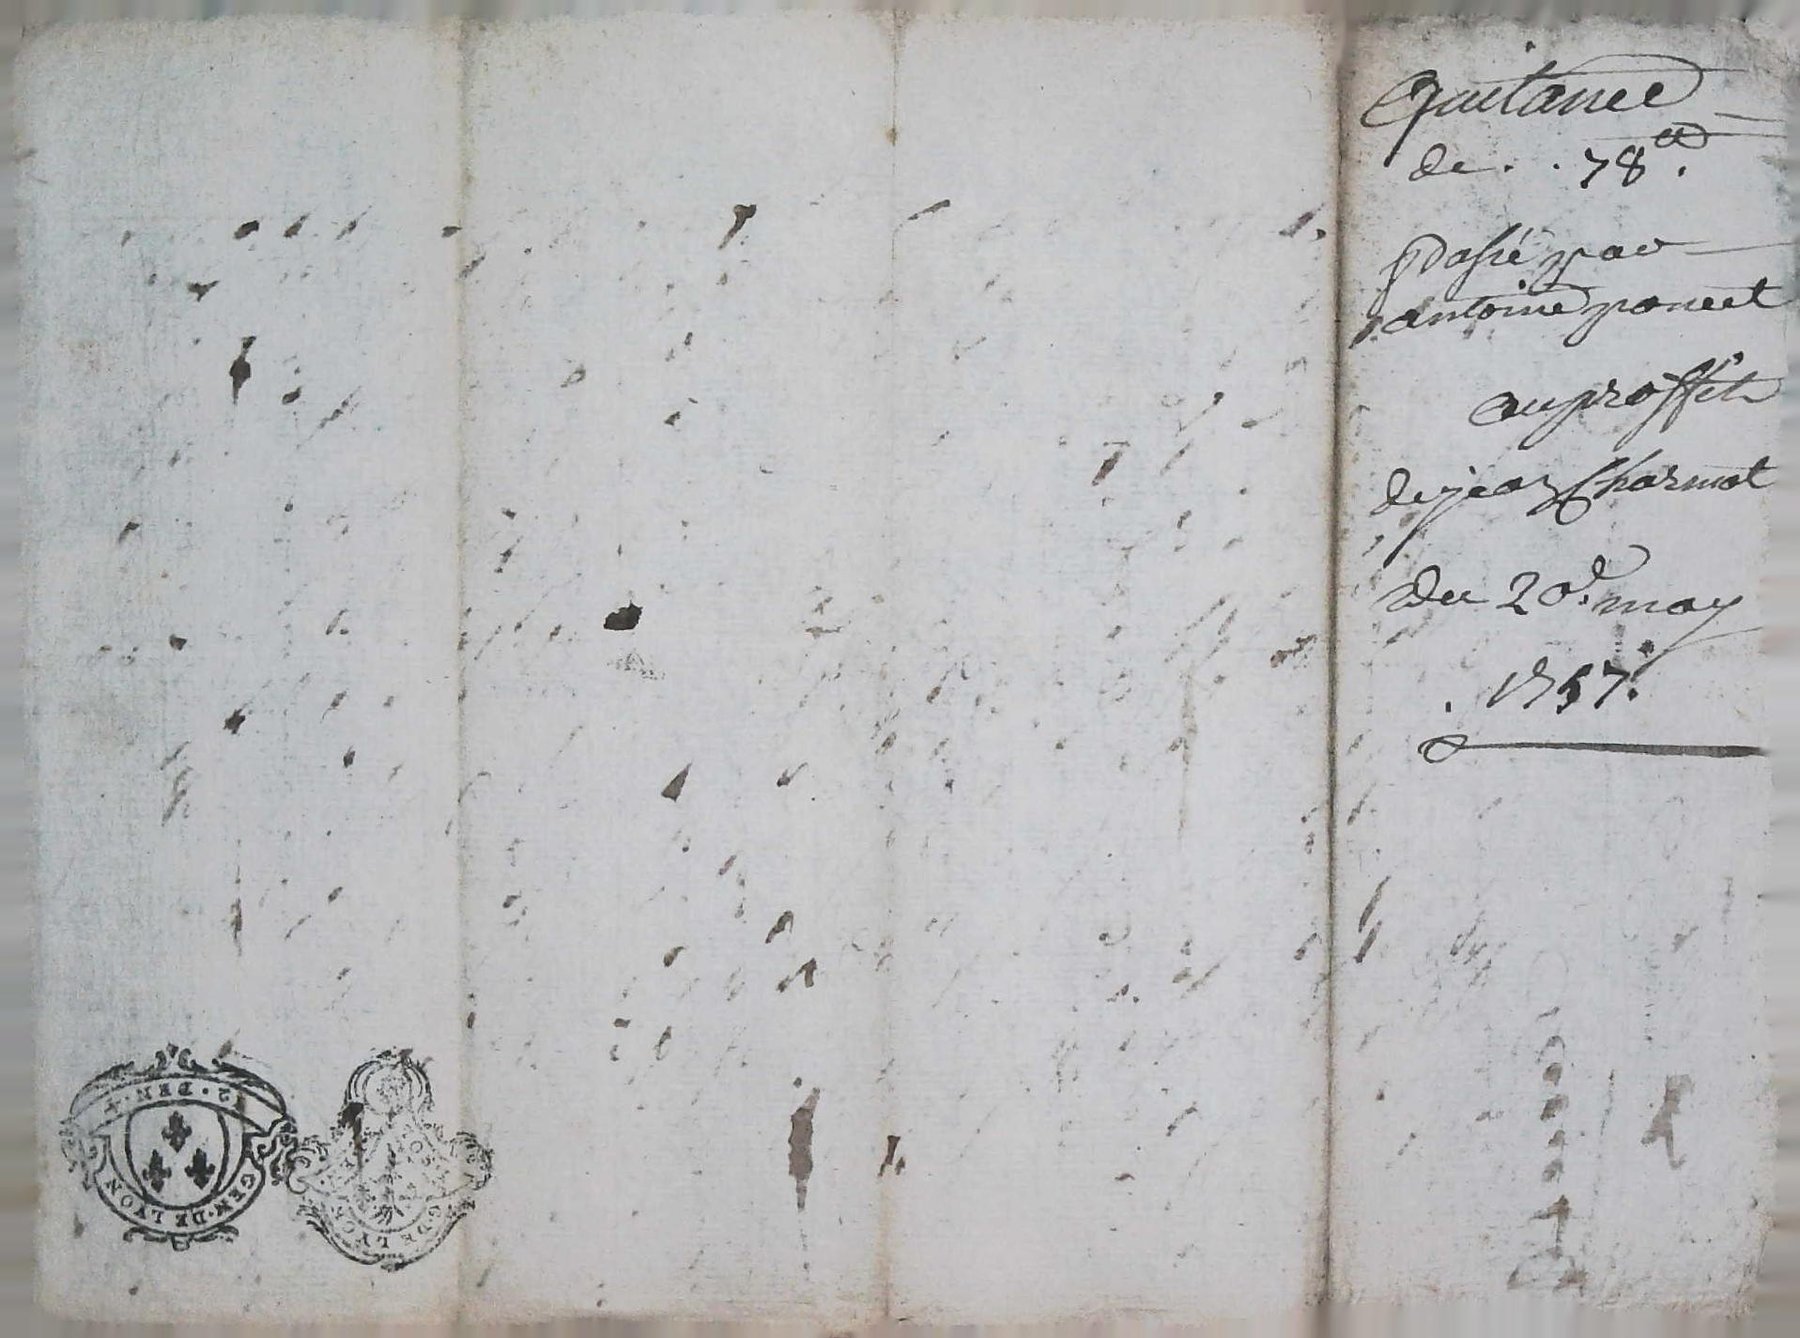 Quitance
de . . 78 ₶.
Passé par
antoine poncet
au proffit
de jean Charmot
du 20.e may
. 1757.
12 · DEN · X
GEN · DE LYON
G · DE LYON